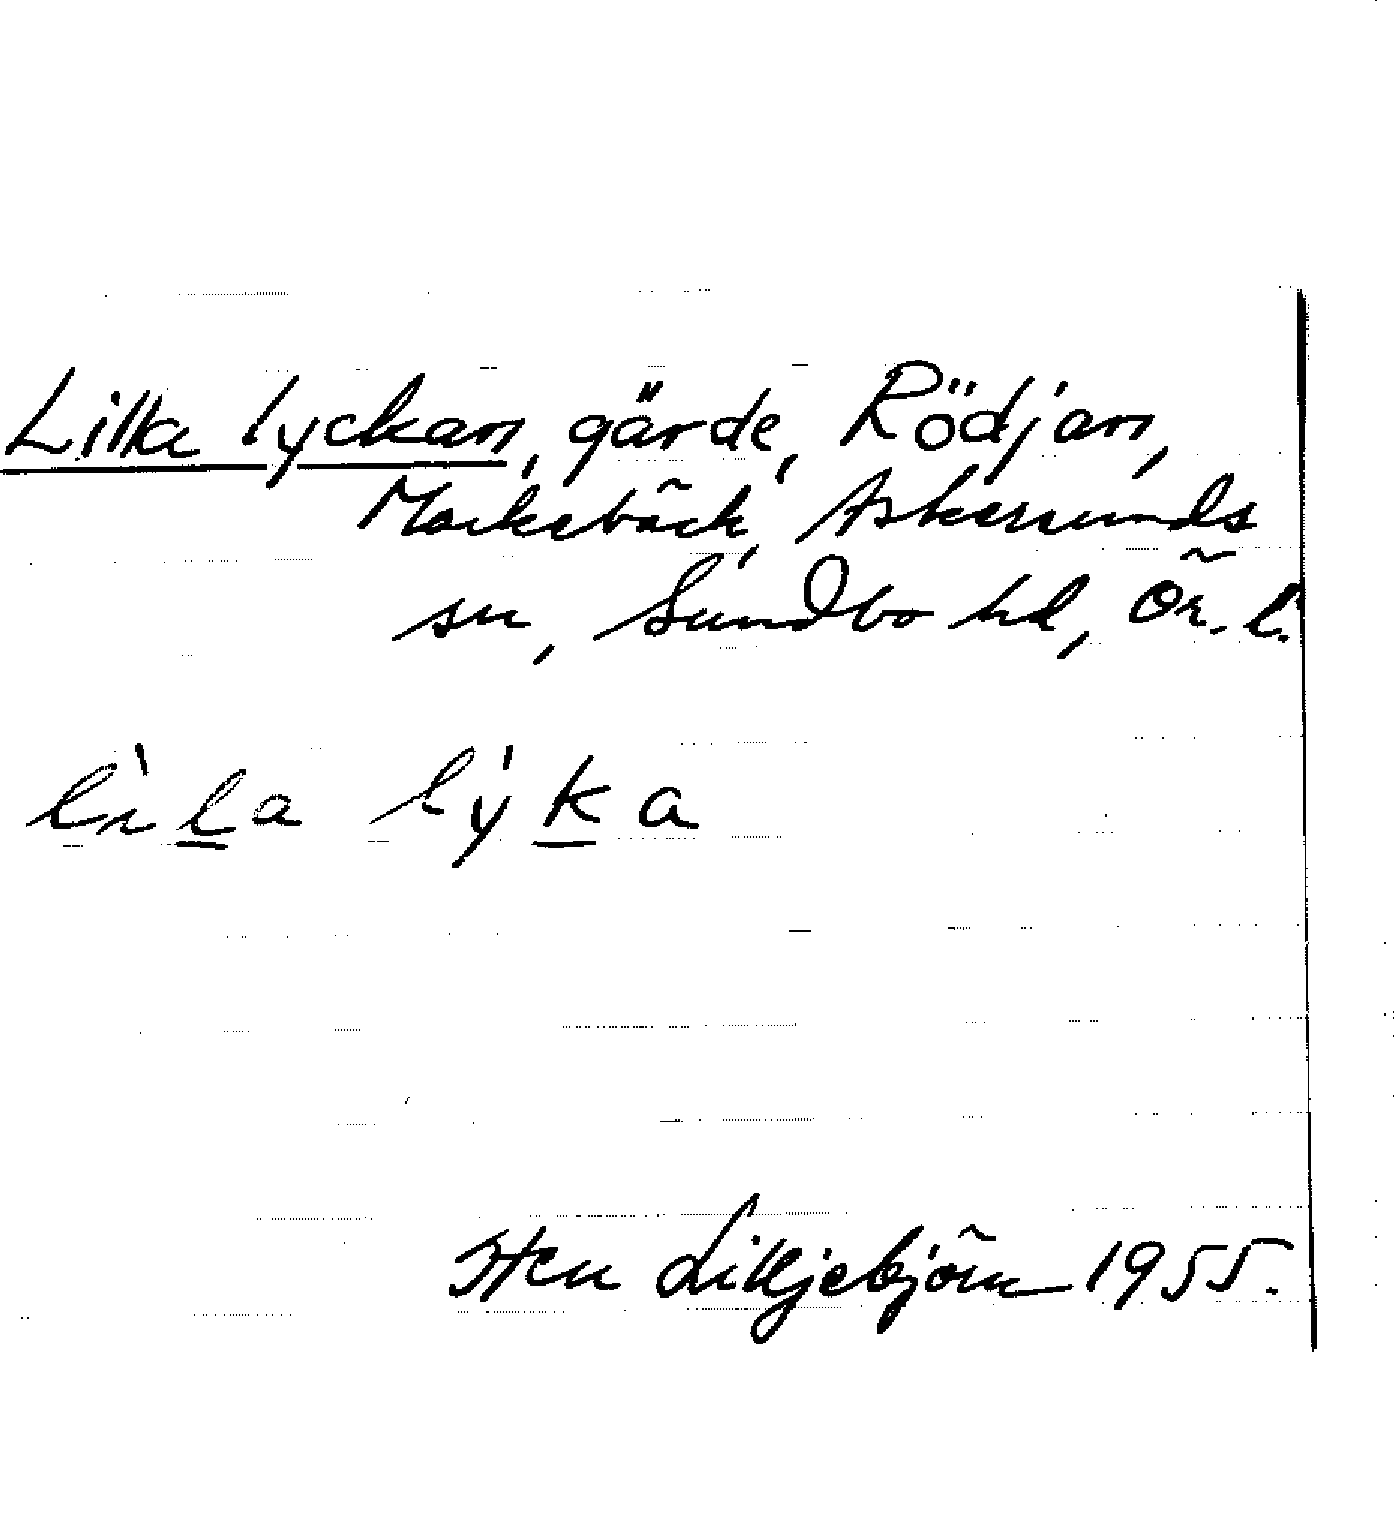 Lilla lyckan, gärde, Rödjan,
Markebäck, Askersunds
sn, Sundbo hd, Ör. l.
lìla lýka
Sten Lilljebjörn 1955.